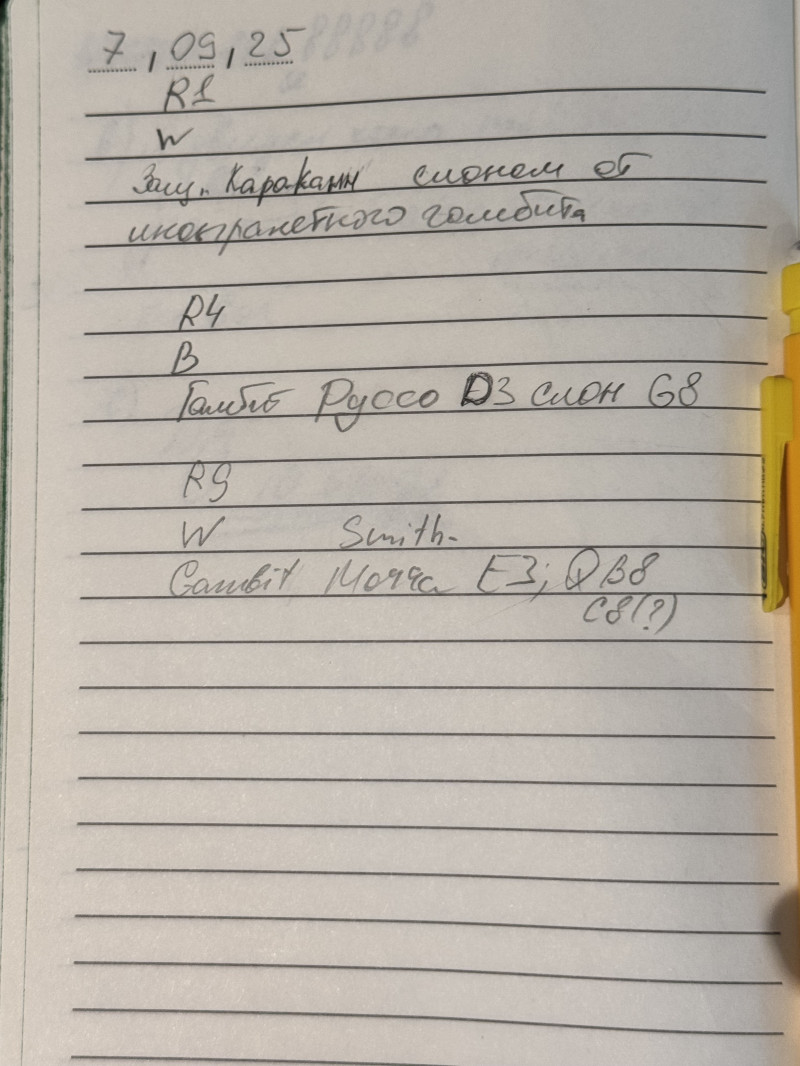 7, 09, 25
R1
W
Защ. Караканн слоном от
инопланетного гамбита
R4
B
Гамбит Руссо D3 слон G8
R9
W Smith-
Gambit Морра E3; QB8
C8(?)